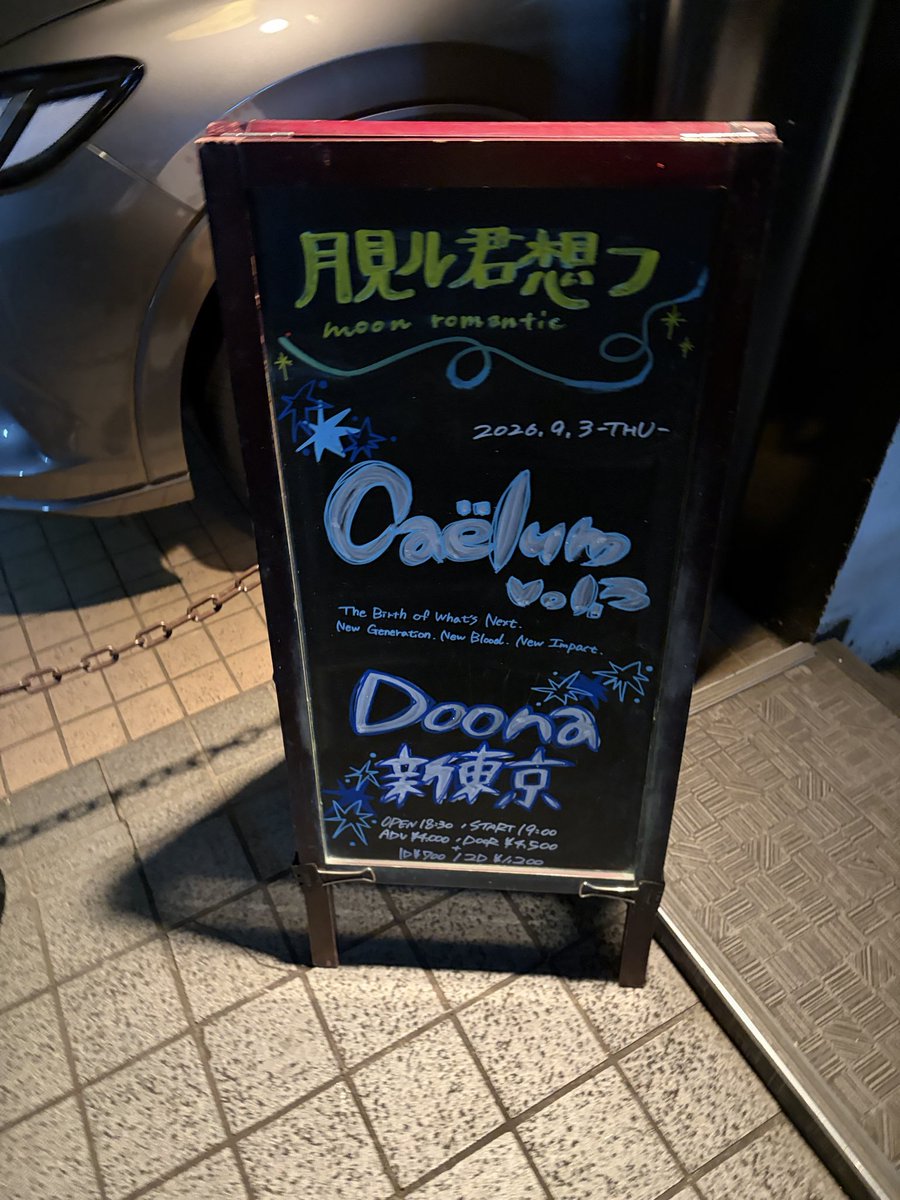 月見ル君想フ
moon romantic
2026.9.3-THU-
Caëlum
vol.3
The Birth of What's Next.
New Generation. New Blood. New Impact.
Doona
新東京
OPEN 18:30 / START 19:00
ADV ¥4,000 / DOOR ¥4,500
+
1D ¥700 / 2D ¥1,200